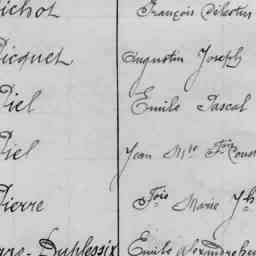 ichot François Célestin
icquet Augustin Joseph
Piel Emile Pascal
Piel Jean Mie Fois Const
Pierre Fois Marie Jh
Duplessix Emile Alexandre